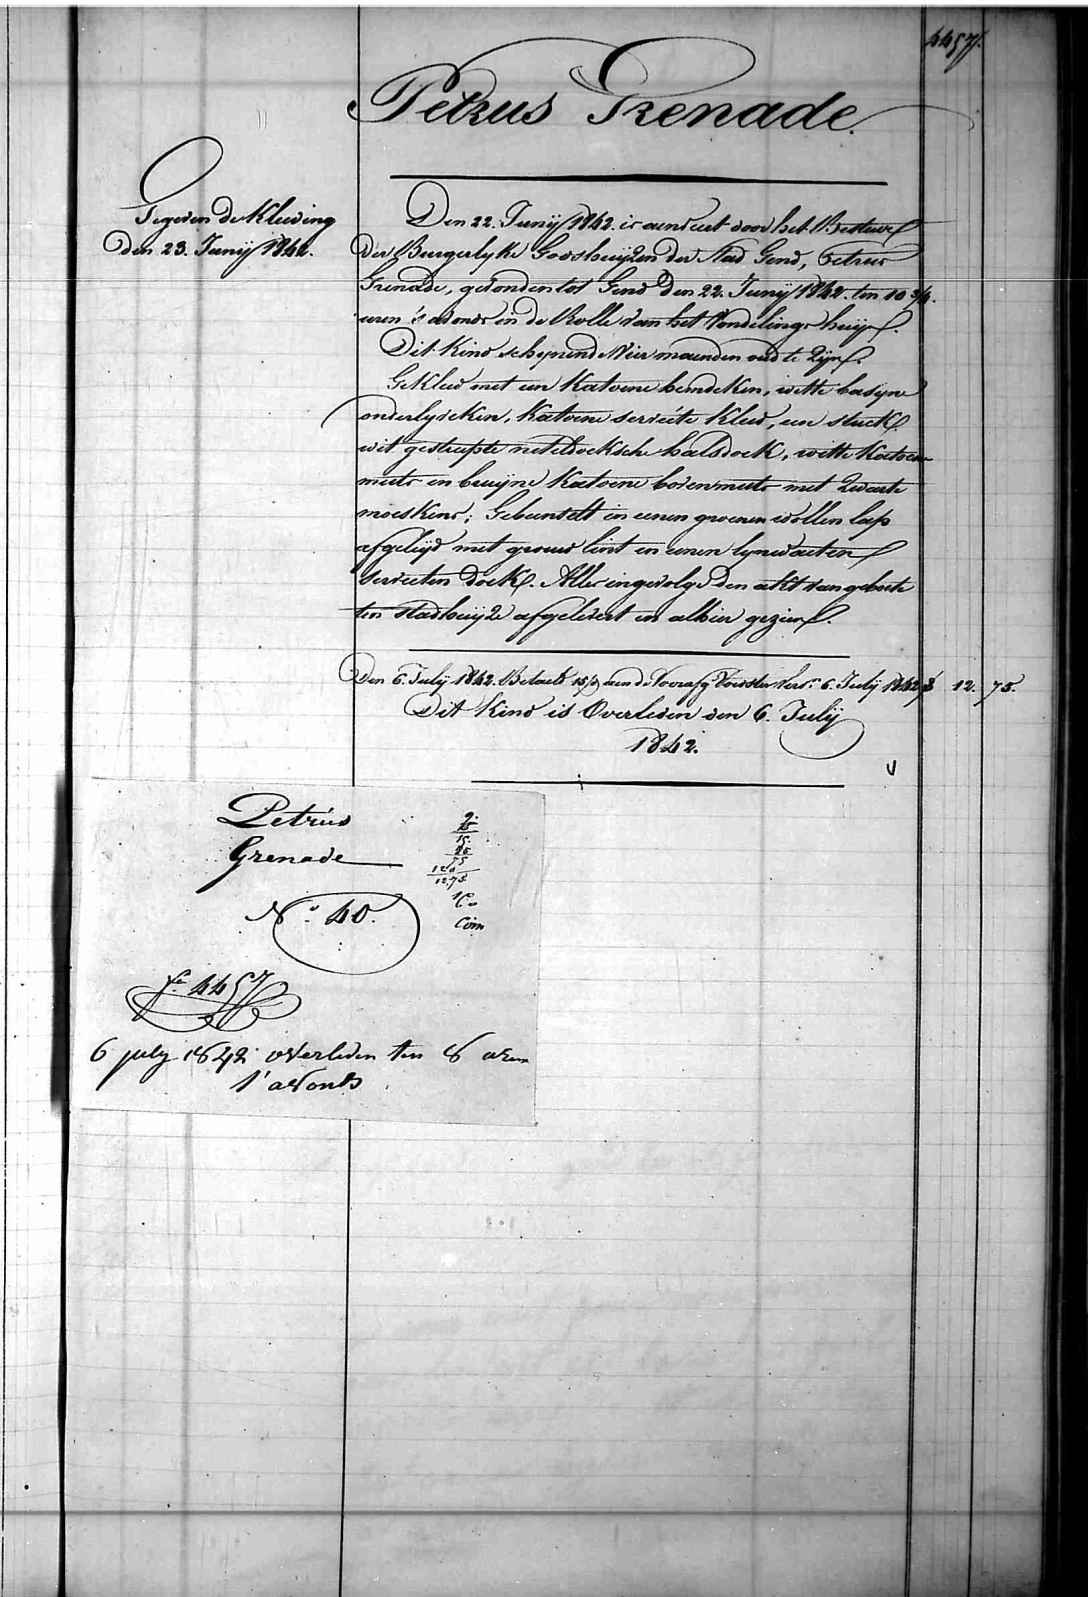 4457.
Petrus Grenade.
Gegeven de Kleeding
Den 23. Junij 1842.
Den 22. Junij 1842. is aenveert door het Bestuer
Der Burgerlyke Godshuyzen der Stad Gend, Petrus
Grenade, gevonden tot Gend Den 22. Junij 1842. ten 10 3/4.
uren 's avonds in de Rolle van het Vondelings huys.
Dit Kind schynende Vier maenden oud te Zyn.
Gekleed met een Katoene hemdeken, witte basyne
onderlyfseken, Katoene serviéte Kleed, een stuck
wit gestrepte neteldoeksche halsdoek, witte Katoene
muts en bruyne Katoene bovenmuts met Zwarte
moeskens; Gebunselt in eenen groenen wollen lap
afgeleyd met grouw lint en eenen lynwaeten
servieten doek. Alles ingevolge den akt van geboorte
ten stadhuyze afgelevert en alhier gezien.
Den 6. July 1842. Betaelt 15/ aen de Voorsz. Voedster Vers. 6. July 1842 f 12. 75.
Dit Kind is Overleden den 6. Julij
1842.
Petrus
Grenade
N.º 40.
fº 4457
6 july 1842 overleden ten 8 uren
s' avonds
9.
15.
75
12.75
Com